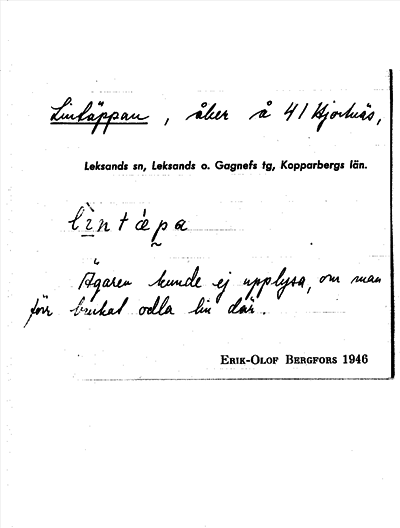 Lintäppan, åker å 41 Hjortnäs,
Leksands sn, Leksands o. Gagnefs tg, Kopparbergs län.
lì̱ntä́pa
Ägaren kunde ej upplysa, om man
förr brukat odla lin där.
ERIK-OLOF BERGFORS 1946